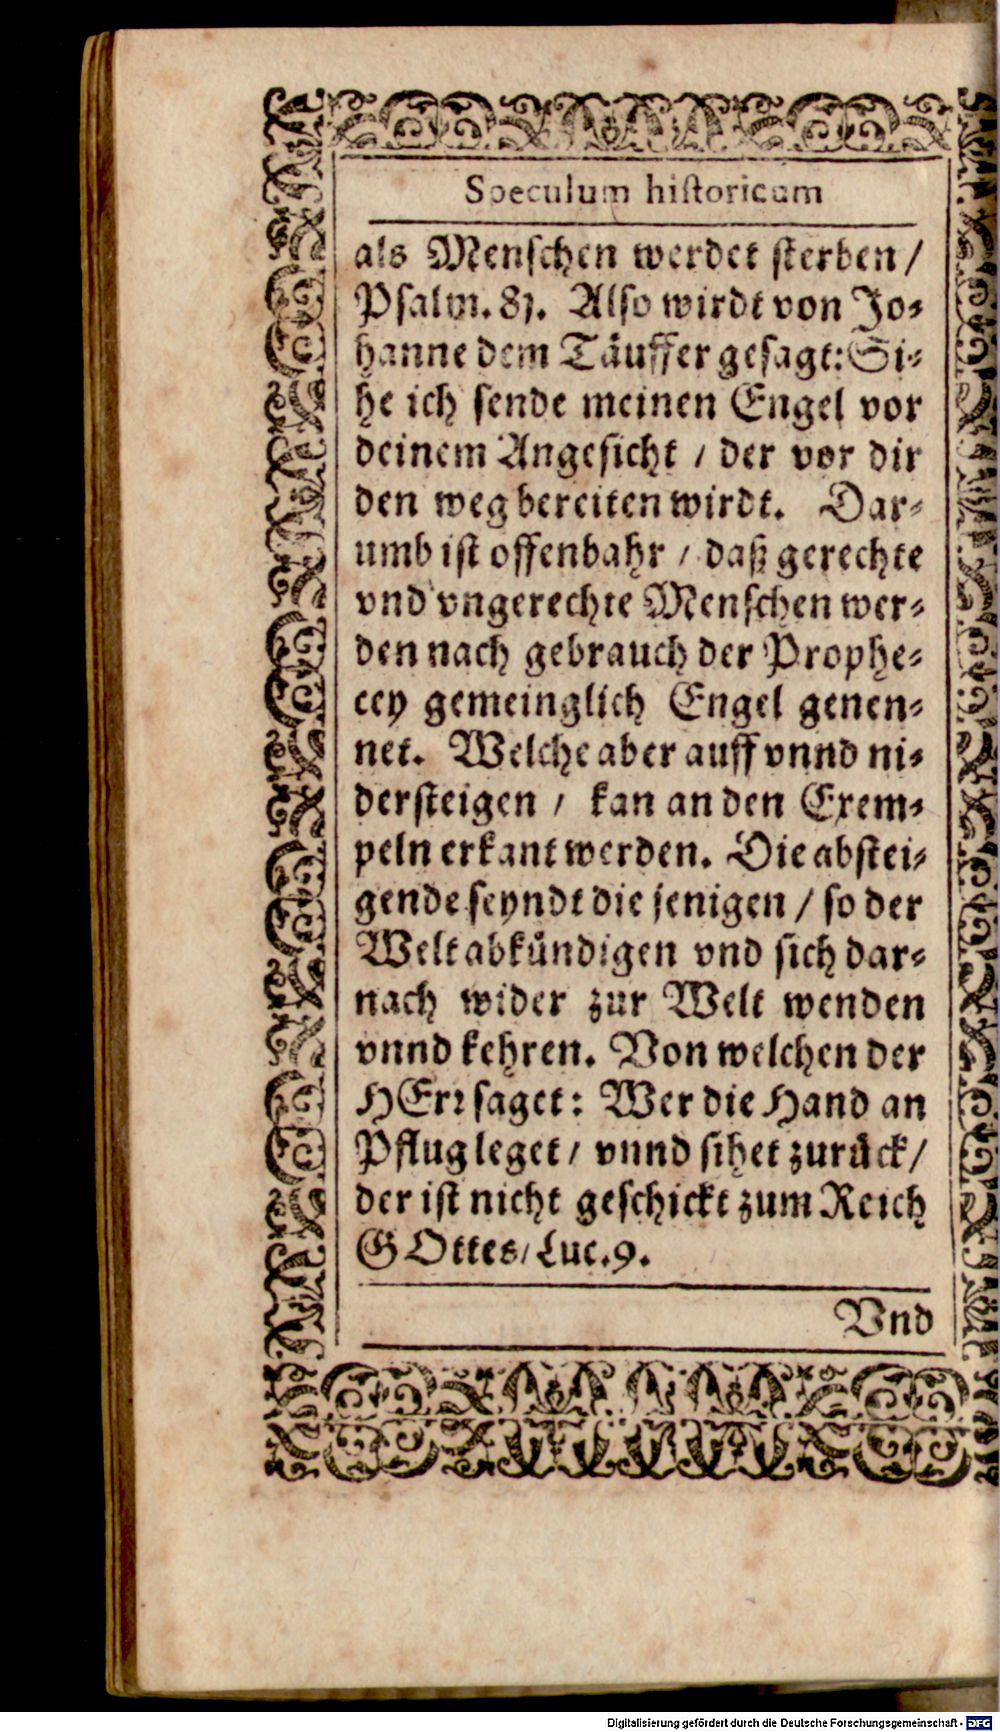 Speculum historicum
als Menschen werdet sterben /
Psalm. 81. Also wirdt von Jo-
hanne dem Täuffer gesagt: Si-
he ich sende meinen Engel vor
deinem Angesicht / der vor dir
den weg bereiten wirdt. Dar-
umb ist offenbahr / daß gerechte
vnd vngerechte Menschen wer-
den nach gebrauch der Prophe-
cey gemeinglich Engel genen-
net. Welche aber auff vnnd ni-
dersteigen / kan an den Exem-
peln erkant werden. Die abstei-
gende seyndt die jenigen / so der
Welt abkündigen vnd sich dar-
nach wider zur Welt wenden
vnnd kehren. Von welchen der
HErr saget: Wer die Hand an
Pflug leget / vnnd sihet zurück /
der ist nicht geschickt zum Reich
GOttes / Luc. 9.
Vnd
Digitalisierung gefördert durch die Deutsche Forschungsgemeinschaft - DFG